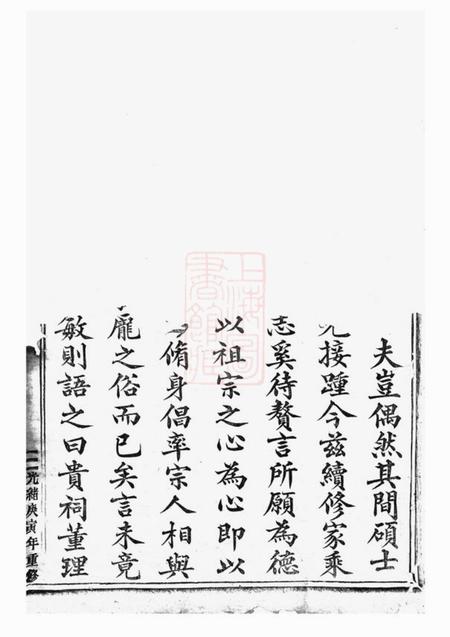 夫豈偶然其間碩士
接踵今茲續修家乘
志奚待贅言所願為德
以祖宗之心為心即以
脩身倡率宗人相與
龐之俗而已矣言未竟
敏則語之曰貴祠董理
光緒庚寅年重修
上海圖書館藏